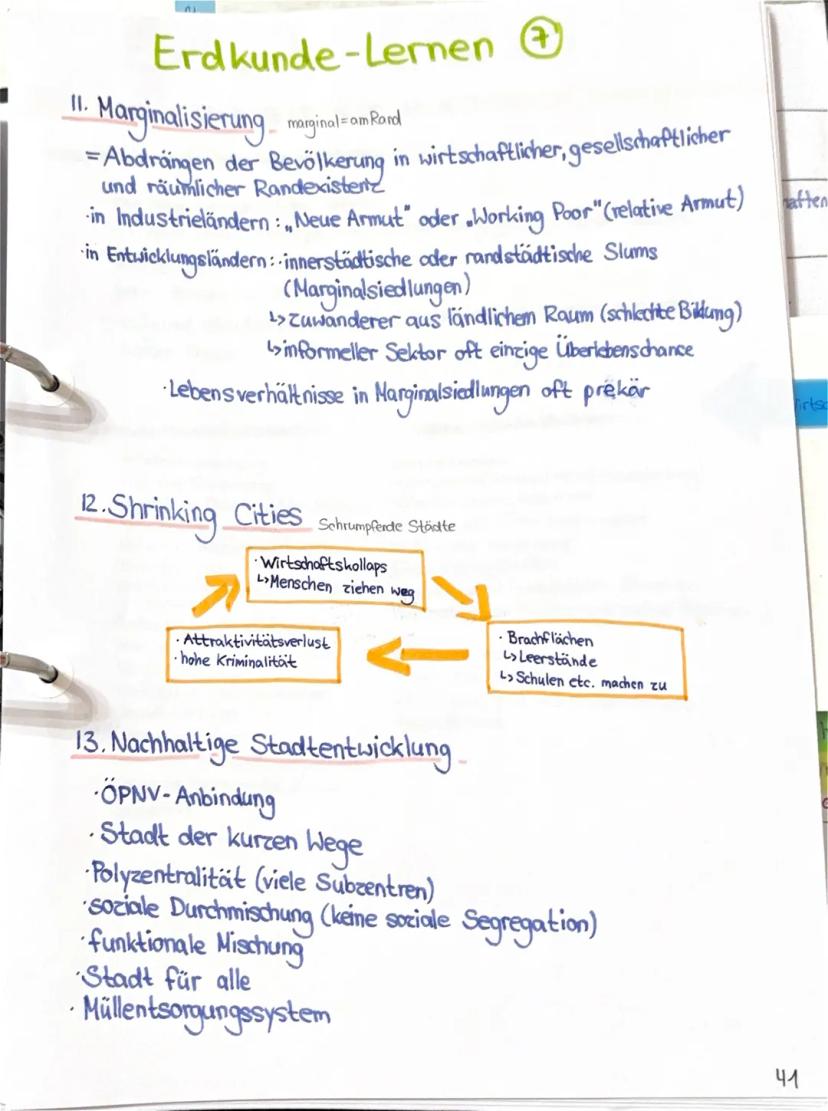 Erdkunde-Lernen 7
11. Marginalisierung marginal=am Rand
=Abdrängen der Bevölkerung in wirtschaftlicher, gesellschaftlicher
und räumlicher Randexistenz
·in Industrieländern: „Neue Armut" oder „Working Poor" (relative Armut)
·in Entwicklungsländern: ·innerstädtische oder randstädtische Slums
(Marginalsiedlungen)
↳Zuwanderer aus ländlichem Raum (schlechte Bildung)
↳informeller Sektor oft einzige Überlebenschance
·Lebensverhältnisse in Marginalsiedlungen oft prekär
12. Shrinking Cities Schrumpfende Städte
·Wirtschaftskollaps
↳Menschen ziehen weg
·Attraktivitätsverlust
·hohe Kriminalität
·Brachflächen
↳Leerstände
↳Schulen etc. machen zu
13. Nachhaltige Stadtentwicklung
·ÖPNV-Anbindung
·Stadt der kurzen Wege
·Polyzentralität (viele Subzentren)
·soziale Durchmischung (keine soziale Segregation)
·funktionale Mischung
·Stadt für alle
·Müllentsorgungssystem
41